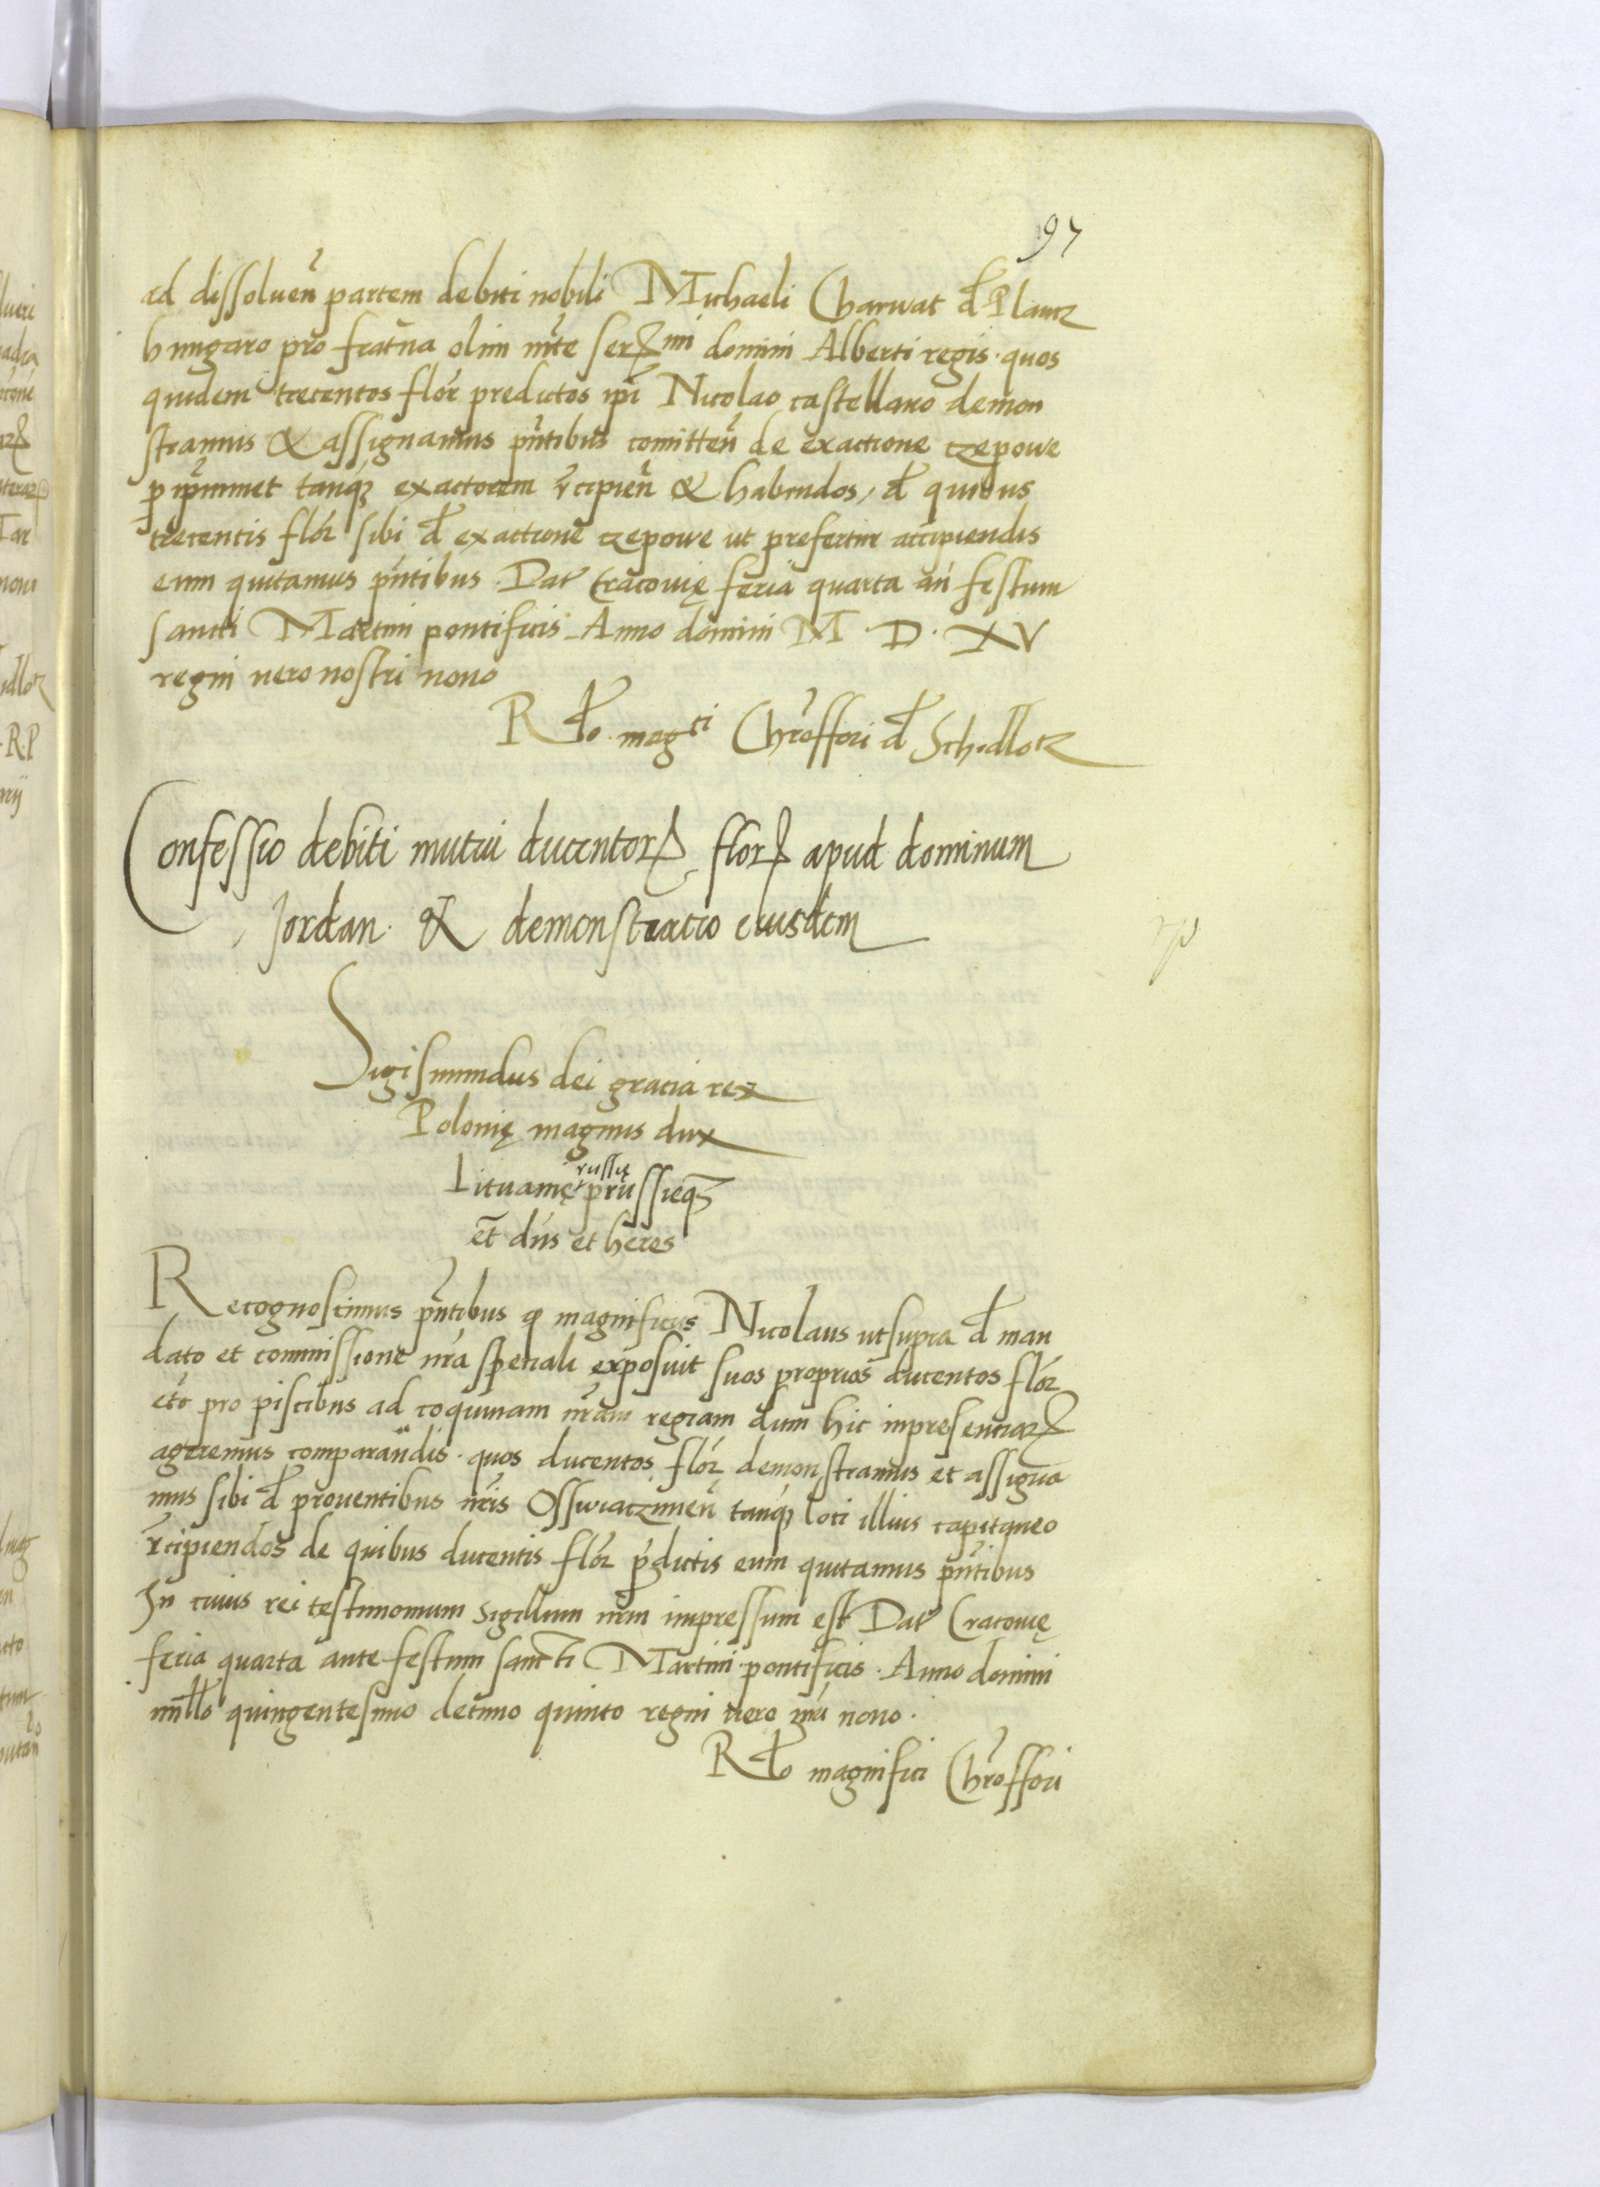 97
ad dissoluen̄ partem debiti nobili Michaeli Charwat de Plawcz
hungaro pro frat̄na olim m̄te serꝝmi domini Alberti regis. quos
quidem trecentos flor̄ predictos ip̄i Nicolao castellano demon
stramus & assignamus pn̄tibus comitten̄ de exactione czepowe
ꝑ ip̄ummet tanqꝫ exactorem r̄cipien̄ & habendos, de quibus
trecentis flor̄ sibi de exactione czepowe ut prefertur accipiendis
eum quitamus pn̄tibus. Dat̄ Cracouię feria quarta an̄ festum
sancti Martini pontificis Anno domini M. D. XV
regni uero nostri nono
Rełо magci Chr̄offori de Schidlotz
Confessio debiti mutui ducentorꝝ florꝝ apud dominum
Jordan. & demonstratio eiusdem
Sigismundus dei gracia rex
Polonię magnus dux
Lituanię russię prussieqꝫ
et̄ dn̄s et heres
Recognoscimus pn̄tibus ꝙ magnificus Nicolaus utsupra de man
dato et commissione nr̄a speciali exposuit suos proprios ducentos flor̄
etc̄ pro piscibus ad coquinam nr̄am regiam dum hic inpresenciarꝝ
ageremus comparandis. quos ducentos flor̄ demonstramus et assigna
mus sibi de prouentibus nr̄is Osswiaczimen̄ tanqꝫ loci illius capitaneo
r̄cipiendos de quibus ducentis flor̄ p̄dictis eum quitamus pn̄tibus
In cuius rei testimonium sigillum nr̄m impressum est Dat̄ Cracouię
feria quarta ante festum sancti Martini pontificis. Anno domini
mille͞o quingentesimo decimo quinto regni uero nr̄i nono.
Rełо magnifici Chr̄offori